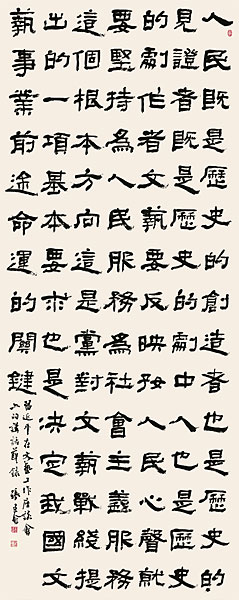 人民既是歷史的創造者也是歷史的
見證者既是歷史的劇中人也是歷史
的劇作者文藝要反映好人民心聲就
要堅持為人民服務為社會主義服務
這個根本方向這是黨對文藝戰綫提
出的一項基本要求也是決定我國文
藝事業前途命運的關鍵
習近平在文藝工作座談會
上的講話節錄